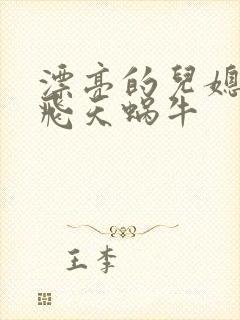 漂亮的兒媳
飛天蝸牛
王李